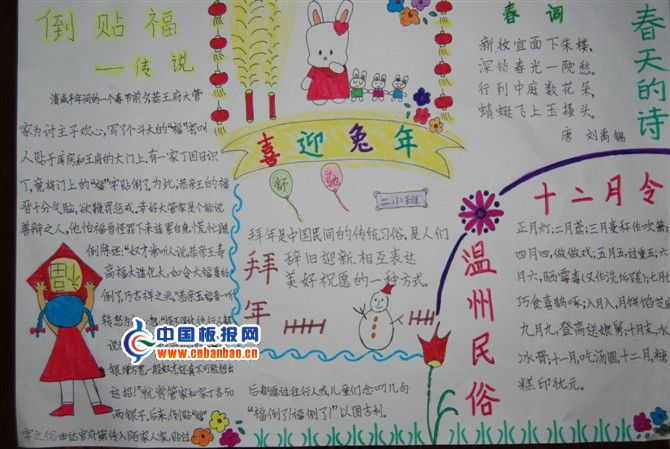 倒贴福
——传说
清咸丰年间的一个春节前夕恭王府大管
家为讨主子欢心，写了个斗大的“福”字叫
人贴于库房和王府的大门上，有一家丁因目识
丁，竟将门上的“福”字贴倒了，为此，恭亲王的福
晋十分气脑，欲鞭罚惩戒，幸好大管家是个能说
善辩之人，他怕福晋怪罪下来
倒陈述：“奴才常听人说，恭亲王寿
高福大造化大，如今大福真的
倒了，乃吉祥之兆。”恭亲王福晋一听
赏管家和家丁各50
两银子，后来，倒贴“福”
字之俗由达官府第传入陌家人家，贴过
后都愿过往行人或儿童们念叨几句
“福倒了！福倒了！”以图吉利。
福
喜迎兔年
舒
拜年
拜年是中国民间的传统习俗，是人们
辞旧迎新、相互表达
美好祝愿的一种方式。
春词
新妆宜面下朱楼，
深锁春光一院愁。
行到中庭数花朵，
蜻蜓飞上玉搔头。
唐 刘禹锡
春天的诗
温州民俗
十二月令
正月灯；二月鸢；三月麦秆作吹箫；
四月四，做做戏；五月五，过重五；六
月六，晒霉毒；七月七，
巧食喜鹊啄；八月八，月饼馅
九月九，登高送娘舅；十月末，水
冰雪；十一月，吃汤圆；十二月，糖
糕印状元。
中国板报网
www.cnbanbao.cn